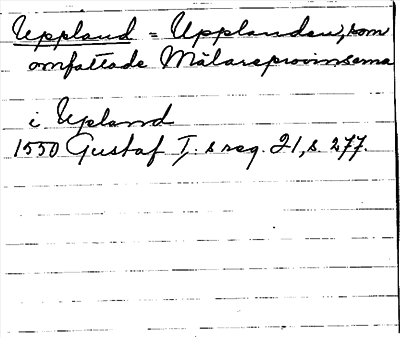 Uppland = Upplanden, som
omfattade Mälareprovinserna
i Upland
1550 Gustaf I:s reg. 21, s. 277.